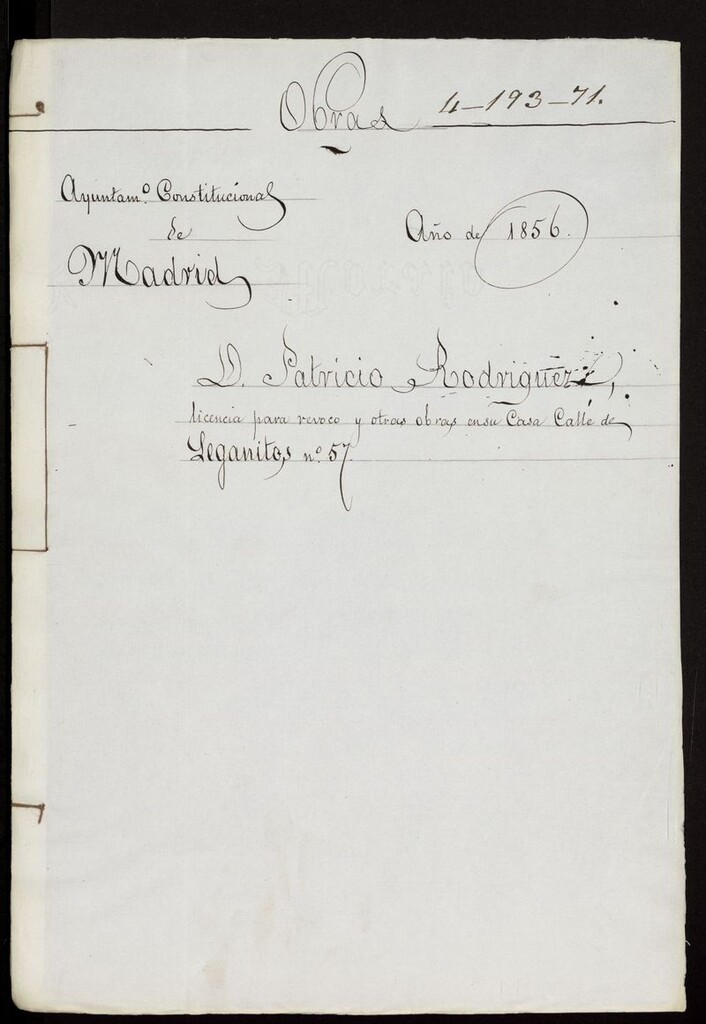 Obras 4-193-71.
Ayuntam.º Constitucional
de
Madrid
Año de 1856.
D. Patricio Rodriguez,
licencia para revoco y otras obras en su Casa Calle de
Leganitos nº 57